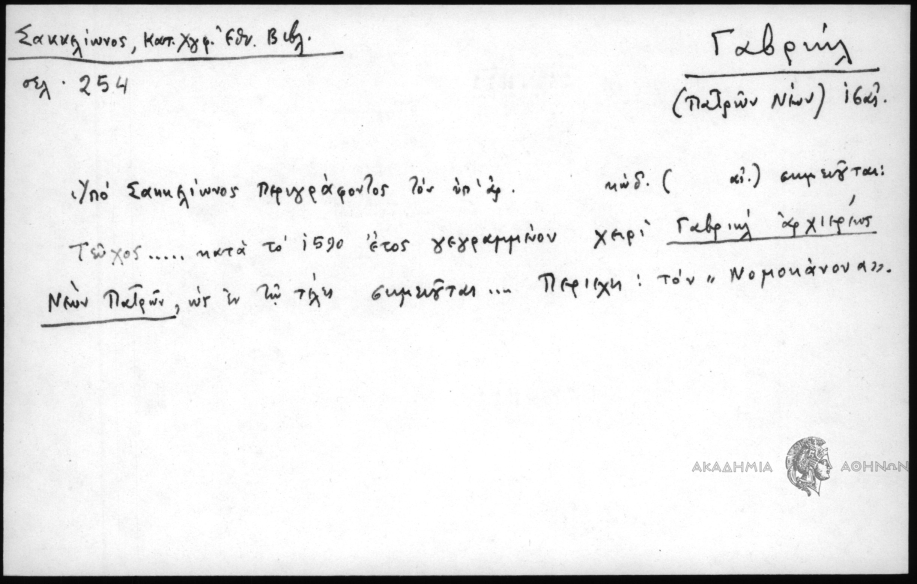 Σακκελίωνος, Κατ. Χγρ. Ἐθν. Βιβλ.
σελ. 254
Γαβριήλ
(Πατρῶν Νέων)
Ὑπό Σακκελίωνος περιγράφοντος τόν ὑπ' ἀρ. κώδ. ( αἰ.) σημειοῦται:
Τεῦχος ..... κατὰ τό 1590 ἔτος γεγραμμένον χειρί Γαβριήλ ἀρχιερέως
Νέων Πατρῶν, ὡς ἐν τῷ τέλει σημειοῦται ... Περιέχει : τόν „ Νομοκάνονα».
ΑΚΑΔΗΜΙΑ ΑΘΗΝΩΝ